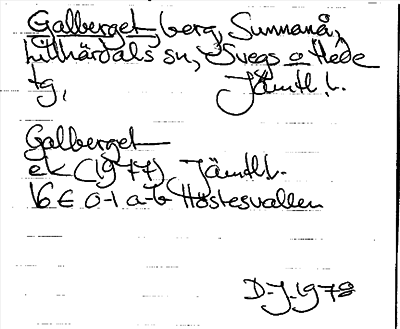 Galberget, berg, Sunnanå,
Lillhärdals sn, Svegs o Hede
tg, Jämtl. l.
Galberget
ek (1977) Jämtl l.
16 E 0-1 a-b Höstesvallen
D-J-1978